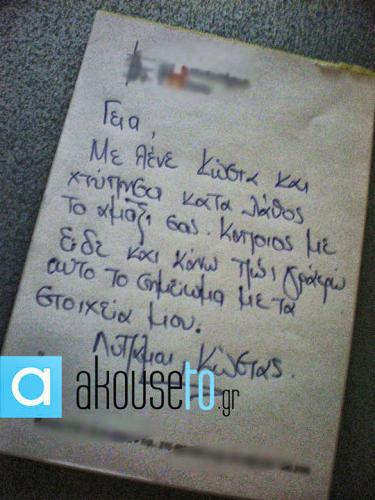 Γεια,
Με λένε Κώστα και
χτύπησα κατα λάθος
το αμάξι σας. Κάποιος με
είδε και κάνω πως γράφω
αυτο το σημείωμα με τα
στοιχεία μου.
Λυπάμαι Κώστας.
a akouseto.gr